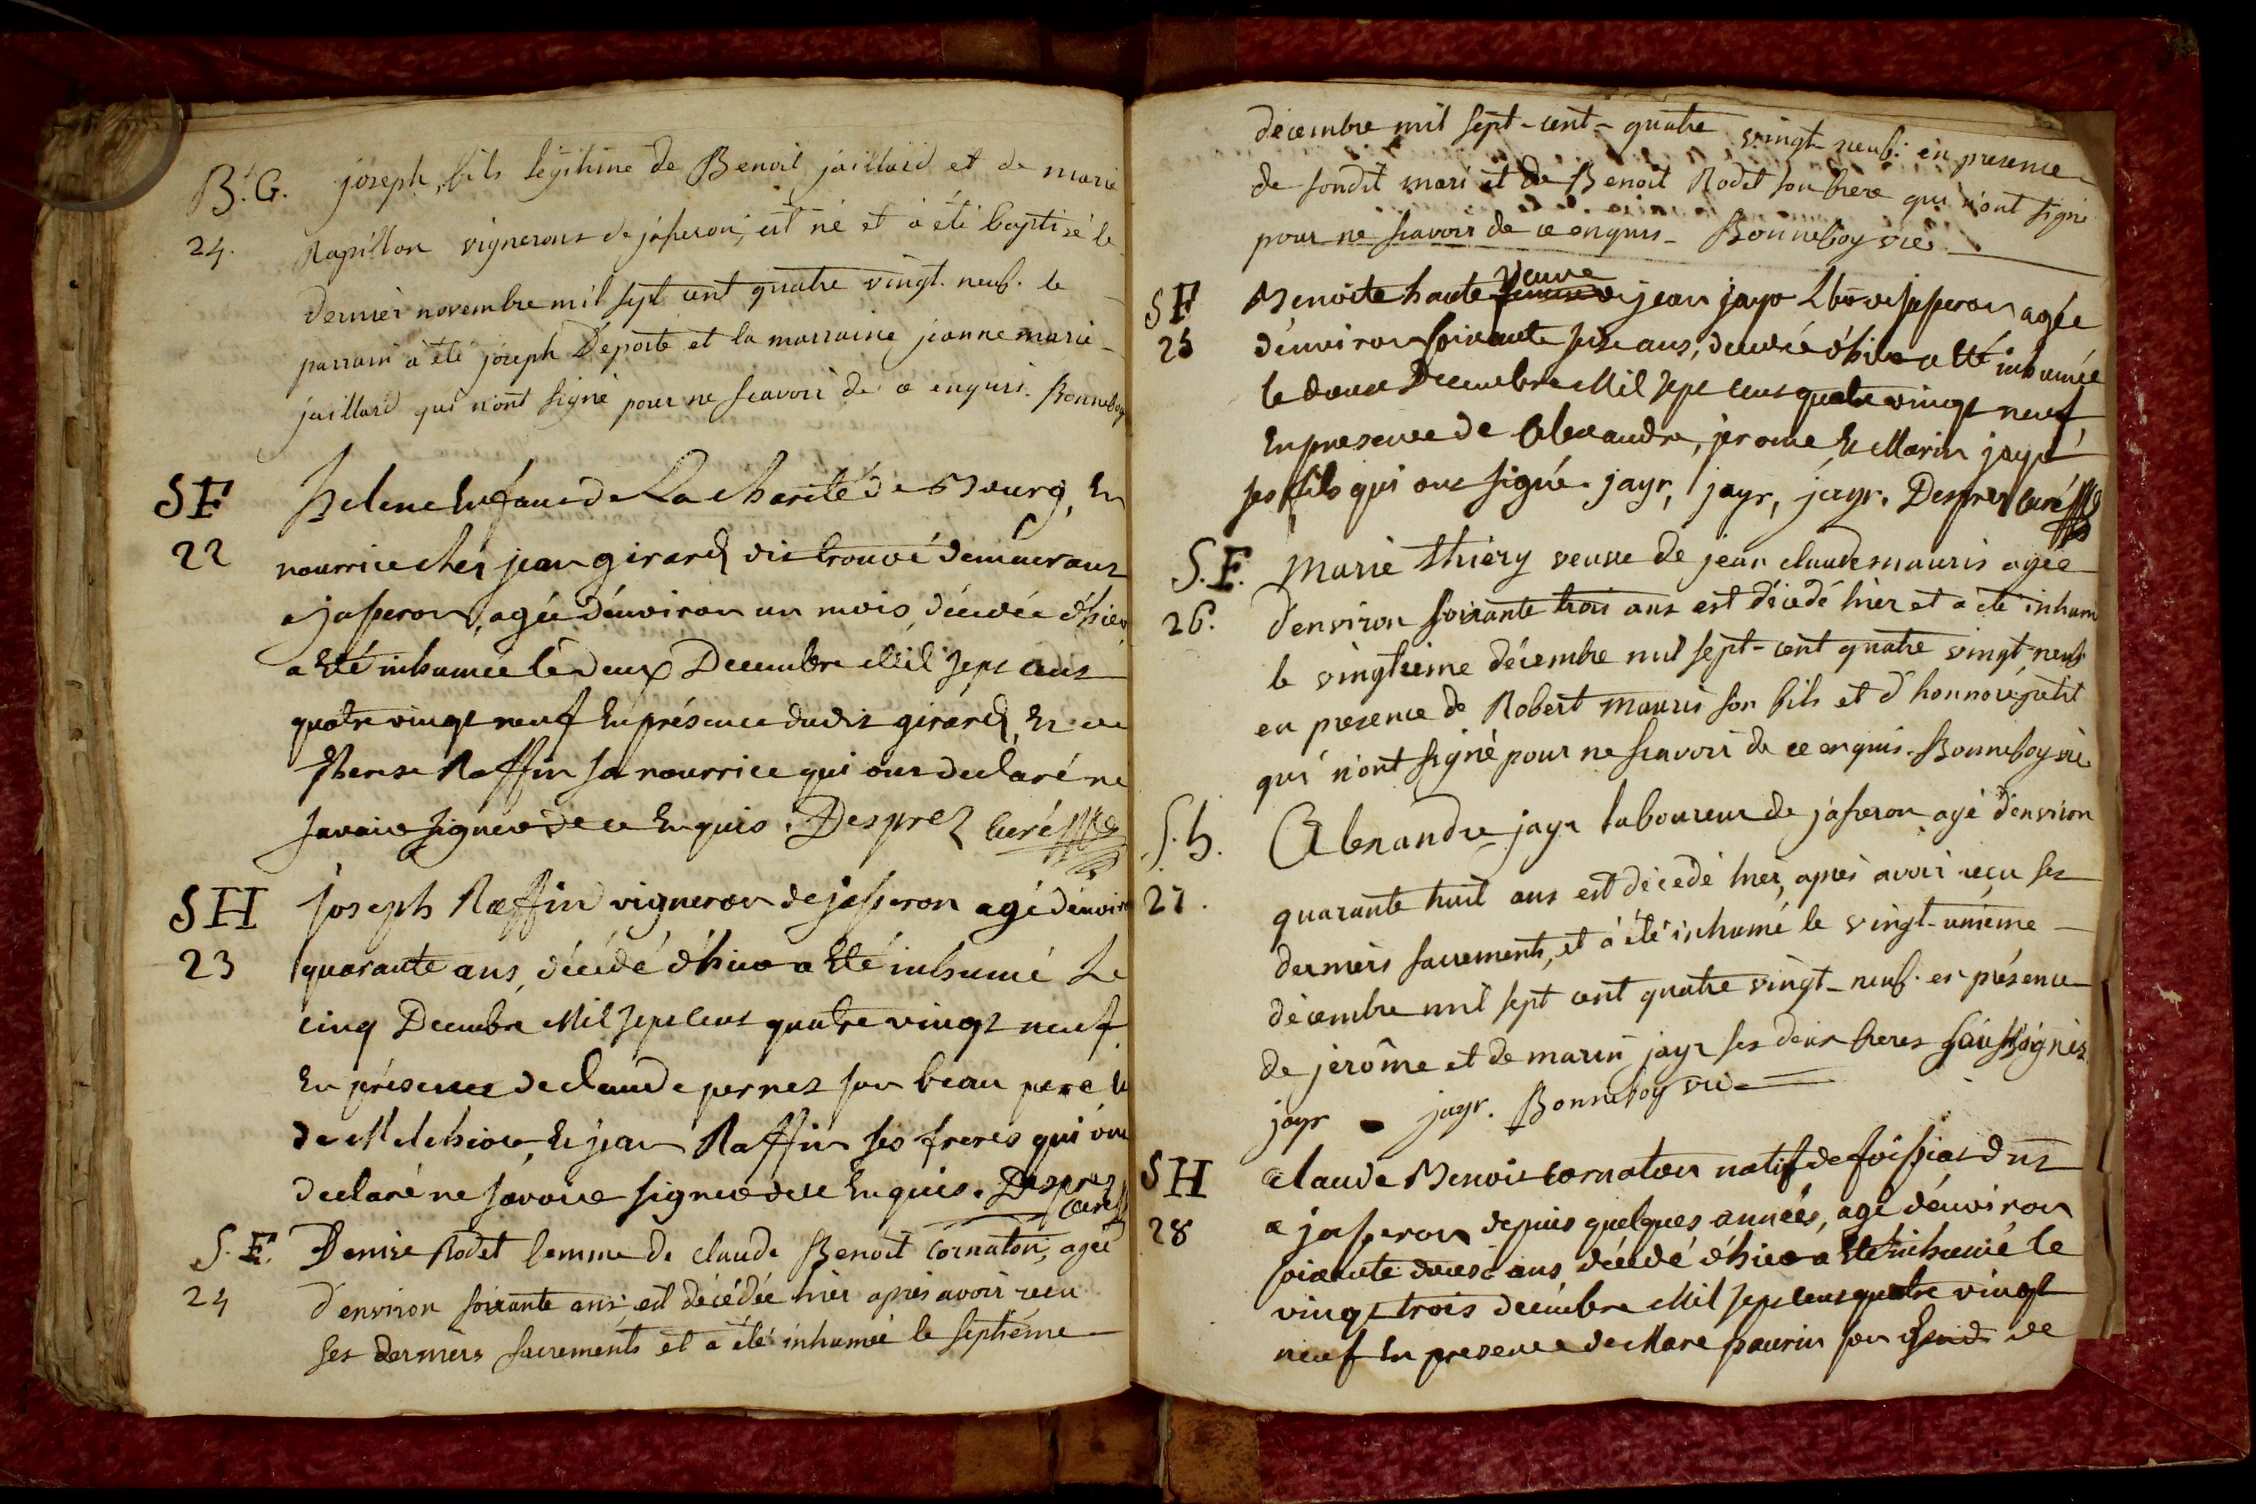 B. G.
24.
joseph, fils légitime de Benoit jaillard et de marie
Rapillon vignerons de jasseron, est né et à été baptisé le
dernier novembre mil sept cent quatre vingt-neuf. le
parrain à été joseph Déporte et la marraine jeanne marie
jaillard qui n'ont signé pour ne scavoir de ce enquis. Bonneboy
SF
22
helene Enfant de La charité de Bourg, En
nourrice chés jean girard dit trouvé demeurant
a jasseron, agée d'environ un mois, décédée d'hier
a Eté inhumée le deux Decembre Mil Sept Cent
quatre vingt neuf En présence dudit girard, Et de
therese Raffin sa nourrice qui ont declaré ne
savoir signer de ce Enquis. Desprez curé
SH
23
joseph Raffin vigneron de jasseron agé d'environ
quarante ans, décédé d'hier a Eté inhumé Le
cinq Decembre Mil Sept Cent quatre vingt neuf
En présence de claude pernet son beau pere Et
de Melchior, Et jean Raffin ses freres qui ont
declaré ne savoir signer de ce Enquis. Desprez
curé
S. F.
24
Denise Rodet femme de claude Benoit cornaton, agée
d'environ soixante ans est décédée hier après avoir reçu
ses derniers sacrements et à été inhumée le septième
décembre mil sept-cent-quatre vingt-neuf. en presence
de sondit mari et de Benoit Rodet son frere qui n'ont signé
pour ne scavoir de ce enquis - Bonneboy vic.
SF
25
Benoite haute femme veuve de jean jayr Lbr de jasseron agée
d'environ soixante seize ans, décédée d'hier a Eté inhumée
le douze Decembre Mil Sept Cent quatre vingt neuf
En presence de Alexandre, jerome Et Marin jayr
ses fils qui ont signé. jayr, jayr, jayr. Desprez curé
S. F.
26.
Marie thiery veuve de jean claude mauris agée
d'environ soixante trois ans est décédé hier et à été inhum
le vingtieme décembre mil sept-cent quatre vingt-neuf
en presence de Robert mauris son fils et d'honnoré petit
qui n'ont signé pour ne scavoir de ce enquis. Bonneboy vic
S. h.
27.
Alexandre jayr laboureur de jasseron agé d'environ
quarante huit ans est décédé hier, après avoir reçu ses
derniers sacrements, et à été inhumé le vingt-unième
décembre mil sept cent quatre vingt-neuf. en présence
de jerôme et de marin jayr ses deux freres soussignés
jayr jayr. Bonneboy vic
SH
28
claude Benoit cornaton natif de foissiat dmt
a jasseron depuis quelques années, agé d'environ
soixante douze ans, décédé d'hier a Eté inhumé le
vingt trois decembre Mil Sept Cent quatre vingt
neuf En presence de Marc paurin son de